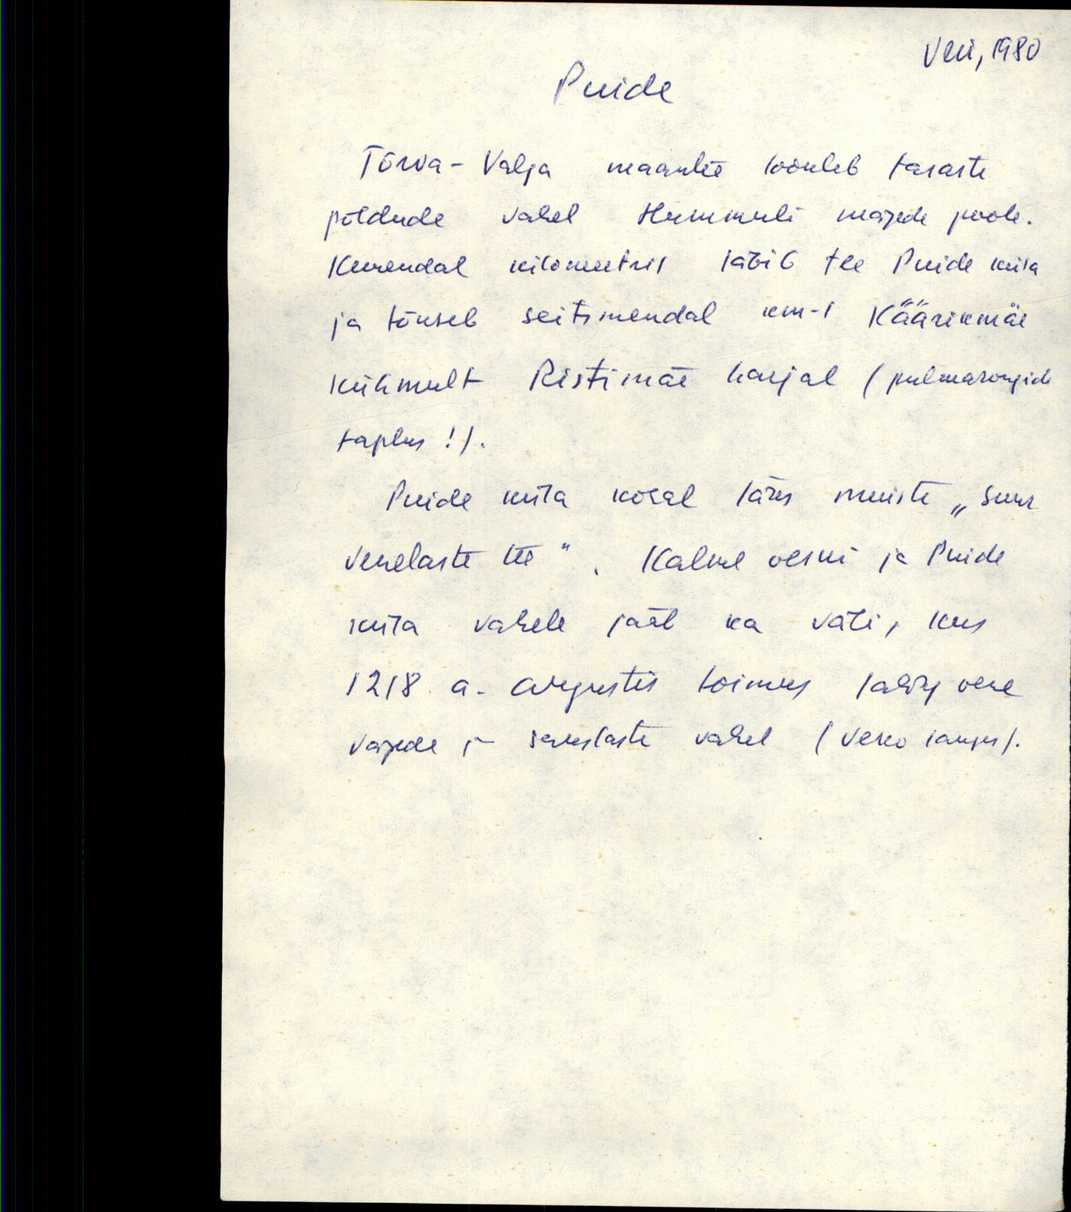 Veri, 1980
Puide
Tõrva - Valga maantee looкleb tasaste
põldude vahel Hummuli mägede poole.
Kuuendal kilomeetril läbib tee Puide küla
ja tõuseb seitsmendal km-l Käärikmäe
kühmult Ristimäe harjal (pulmarongide
taplus!).
Puide küla kohal läks muiste „suur
venelaste tee". Kalme oerni ja Puide
küla vahele jääb ka väli, kus
1218 a. augustis toimus lahing vene
vägede ja sakslaste vahel (Veko langes).